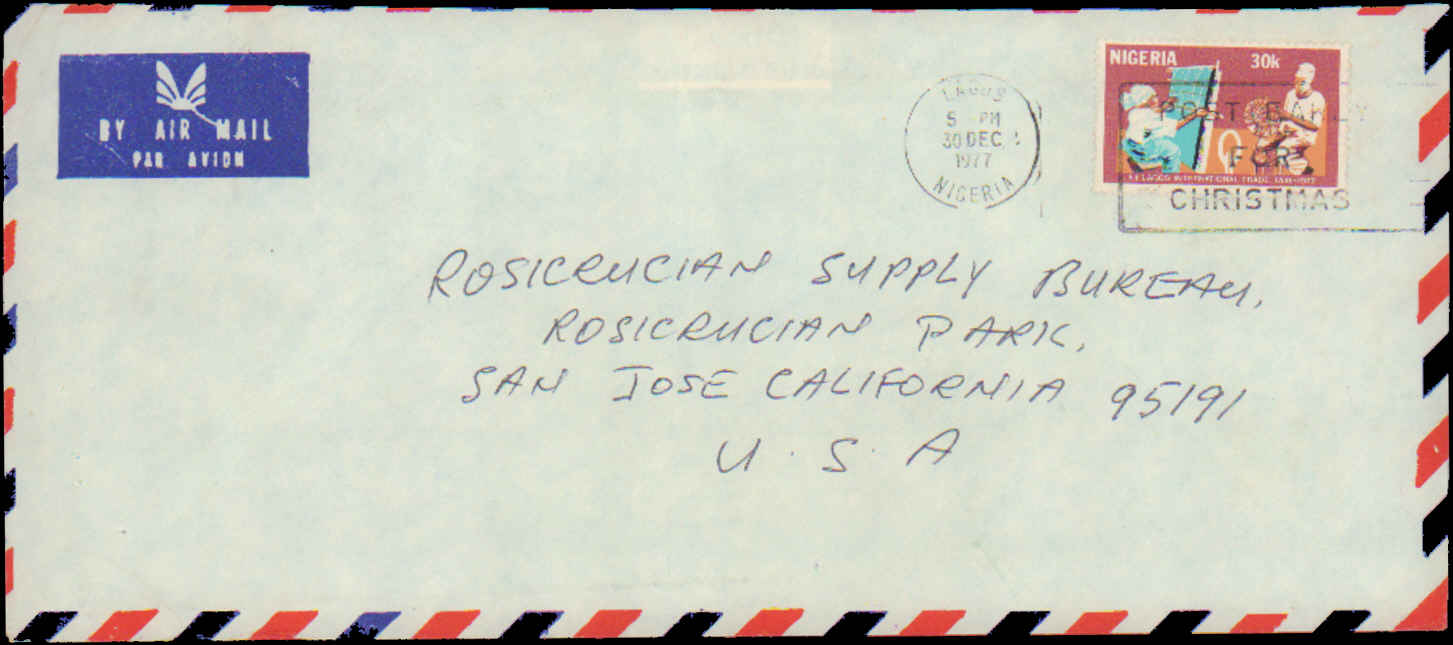 BY AIR MAIL
PAR AVION
LAGOS
5 PM
30 DEC
1977
NIGERIA
NIGERIA 30k
1ST LAGOS INTERNATIONAL TRADE FAIR-1977
POST EARLY
FOR
CHRISTMAS
ROSICRUCIAN SUPPLY BUREAU,
ROSICRUCIAN PARK,
SAN JOSE CALIFORNIA 95191
U.S.A